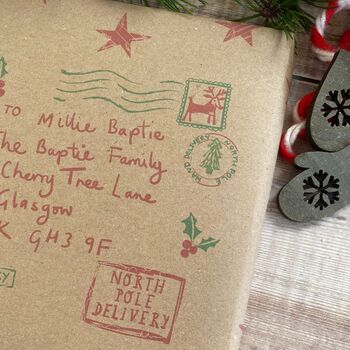 TO Millie Baptie
The Baptie Family
Cherry Tree Lane
Glasgow
K GH3 9F
HAND DELIVERY NORTH POLE
NORTH
POLE
DELIVERY